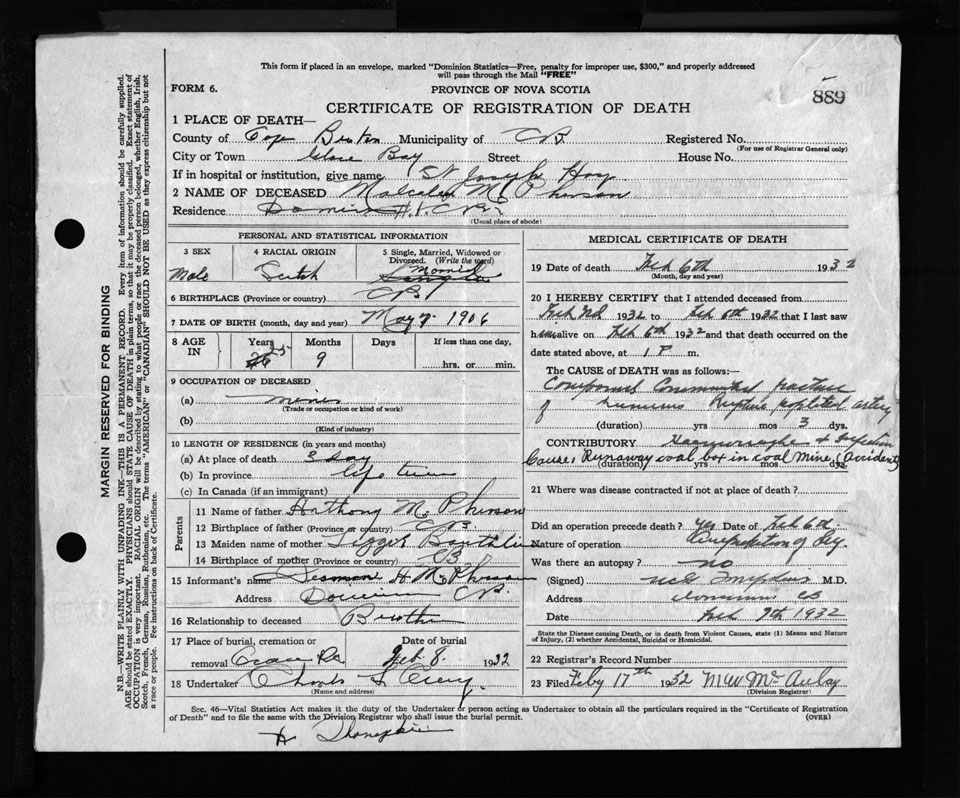 This form if placed in an envelope, marked "Dominion Statistics—Free, penalty for improper use, $300," and properly addressed
will pass through the Mail "FREE"
FORM 6.
PROVINCE OF NOVA SCOTIA
889
CERTIFICATE OF REGISTRATION OF DEATH
1 PLACE OF DEATH—
County of Cape Breton Municipality of CB Registered No.
(For use of Registrar General only)
City or Town Glace Bay Street House No.
If in hospital or institution, give name St Joseph Hosp
2 NAME OF DECEASED Malcolm McPherson
Residence Dominion
(Usual place of abode)
PERSONAL AND STATISTICAL INFORMATION
3 SEX 4 RACIAL ORIGIN 5 Single, Married, Widowed or
Divorced. (Write the word)
Male Scotch Single Married
6 BIRTHPLACE (Province or country) CB
7 DATE OF BIRTH (month, day and year) May 1906
8 AGE IN Years Months Days If less than one day,
26 25 9 hrs. or min.
9 OCCUPATION OF DECEASED
(a) miner
(Trade or occupation or kind of work)
(b)
(Kind of industry)
10 LENGTH OF RESIDENCE (in years and months)
(a) At place of death 3 day
(b) In province life time
(c) In Canada (if an immigrant)
Parents
11 Name of father Anthony McPherson
12 Birthplace of father (Province or country) CB
13 Maiden name of mother
14 Birthplace of mother (Province or country) CB
15 Informant's name H. McPherson
Address Dominion CB
16 Relationship to deceased Brother
17 Place of burial, cremation or Date of burial
removal Feb. 8. 1932
18 Undertaker
(Name and address)
MEDICAL CERTIFICATE OF DEATH
19 Date of death Feb 6th 1932
(Month, day and year)
20 I HEREBY CERTIFY that I attended deceased from
Feb 1932 to Feb 6th 1932 that I last saw
him alive on Feb 6th 1932 and that death occurred on the
date stated above, at 1 P m.
The CAUSE OF DEATH was as follows:—
Compound Comminuted fracture
of Rupture popliteal artery
(duration) yrs mos 3 dys.
CONTRIBUTORY Haemorrhage & Infection
Cause: Runaway coal box in coal mine, (Accident)
(duration) yrs mos dys.
21 Where was disease contracted if not at place of death?
Did an operation precede death? yes Date of Feb 6th
Nature of operation Amputation of leg
Was there an autopsy? no
(Signed) M.D.
Address Dominion CB
Date Feb 9th 1932
State the Disease causing Death, or in death from Violent Causes, state (1) Means and Nature
of Injury, (2) whether Accidental, Suicidal or Homicidal.
22 Registrar's Record Number
23 Filed Feby 17th 1932
(Division Registrar)
Sec. 46—Vital Statistics Act makes it the duty of the Undertaker or person acting as Undertaker to obtain all the particulars required in the "Certificate of Registration
of Death" and to file the same with the Division Registrar who shall issue the burial permit. (OVER)
MARGIN RESERVED FOR BINDING
N.B.—WRITE PLAINLY WITH UNFADING INK—THIS IS A PERMANENT RECORD. Every item of information should be carefully supplied.
AGE should be stated EXACTLY. PHYSICIANS should STATE CAUSE OF DEATH in plain terms, so that it may be properly classified. Exact statement of
OCCUPATION is very important. RACIAL ORIGIN will be described by stating to what people or race the deceased person belonged, whether English, Irish,
Scotch, French, German, Russian, Ruthenian, etc. The terms "AMERICAN" or "CANADIAN" SHOULD NOT BE USED as they express citizenship but not
a race or people. See instructions on back of Certificate.